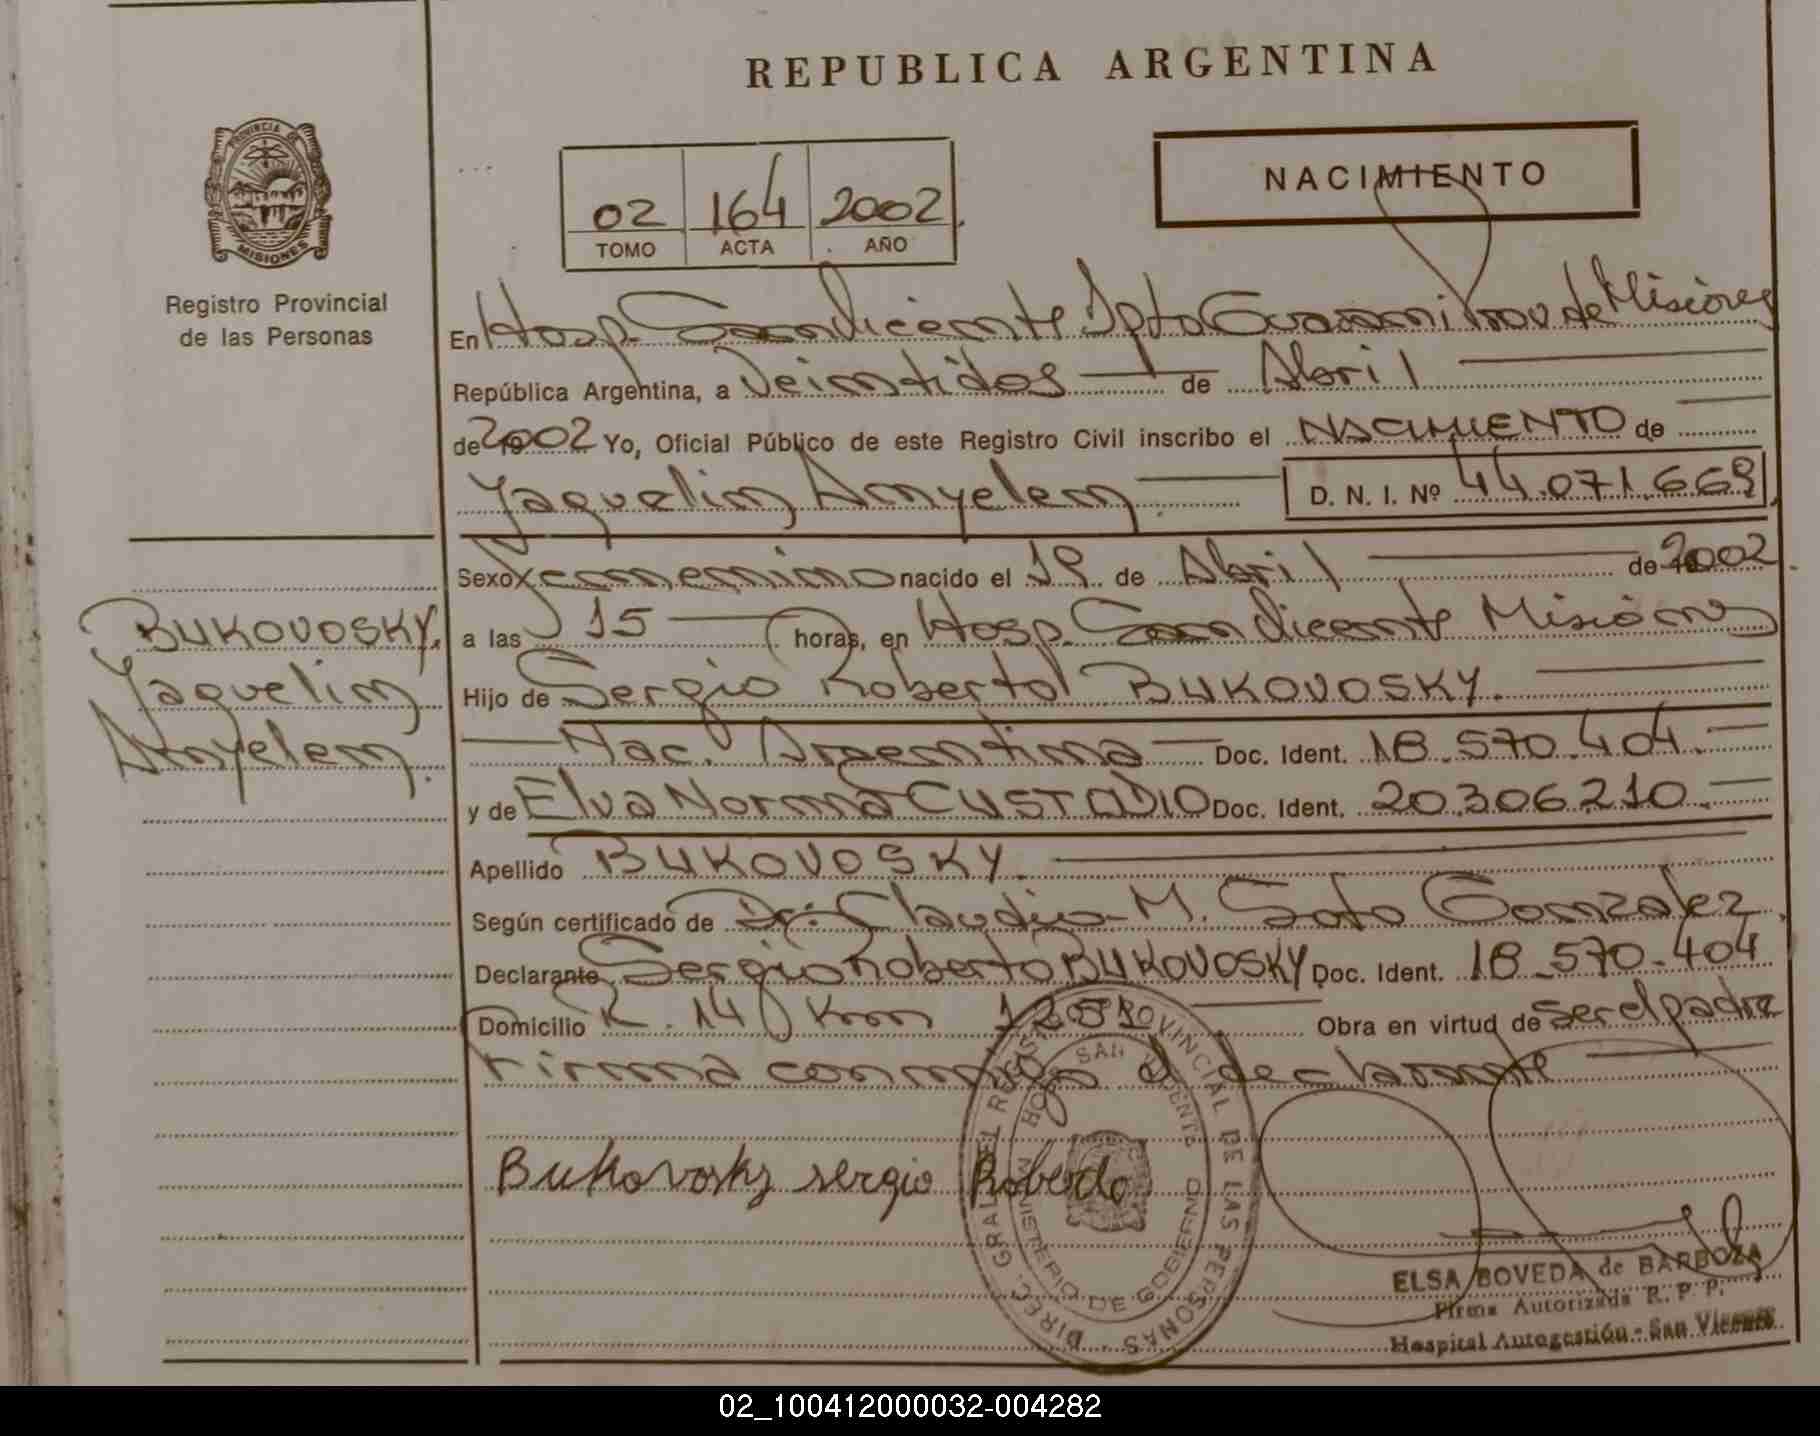 REPUBLICA ARGENTINA
PROVINCIA DE MISIONES
Registro Provincial
de las Personas
02 164 2002
TOMO ACTA AÑO
NACIMIENTO
En Hosp. San Vicente Dpto Guarani Prov de Misiones
República Argentina, a Veintidos de Abril
de 2002 Yo, Oficial Público de este Registro Civil inscribo el NACIMIENTO de
Yaquelin Anyelen D. N. I. Nº 44.071.669
Sexo Femenino nacido el 19 de Abril de 2002
a las 15 horas, en Hosp. San Vicente Misiones
Hijo de Sergio Roberto BUKOVOSKY.
Nac. Argentina Doc. Ident. 18.570.404.
y de Elva Norma CUSTODIO Doc. Ident. 20.306.210.
Apellido BUKOVOSKY.
Según certificado de Dr: Claudio M. Soto Gonzalez.
Declarante Sergio Roberto BUKOVOSKY Doc. Ident. 18.570.404
Domicilio R. 14 Km Obra en virtud de ser el padre
Firma conmigo el declarante
BUKOVOSKY.
Yaquelin
Anyelen.
Bukovosky sergio Roberto
DIREC. GRAL. DEL REGISTRO PROVINCIAL DE LAS PERSONAS
HOSP. SAN VICENTE
MINISTERIO DE GOBIERNO
ELSA BOVEDA de BARBOZA
Firma Autorizada R. P. P.
Hospital Autogestión - San Vicente
02_100412000032-004282